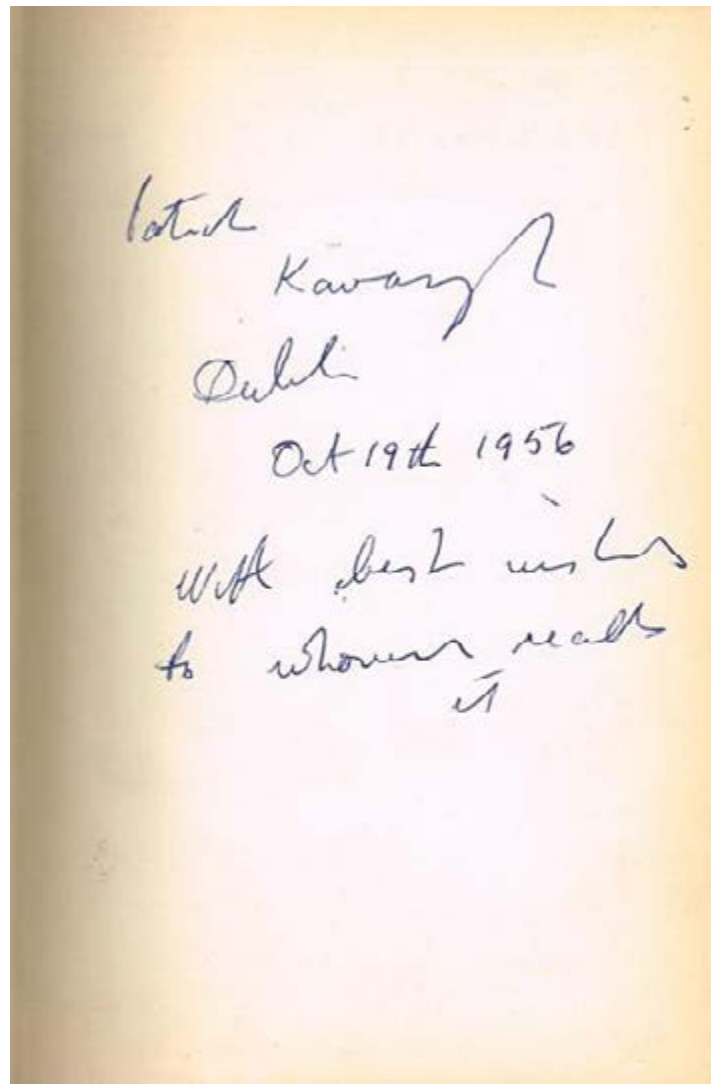 Patrick
Kavanagh
Dublin
Oct 19th 1956
With best wishes
to whoever reads
it